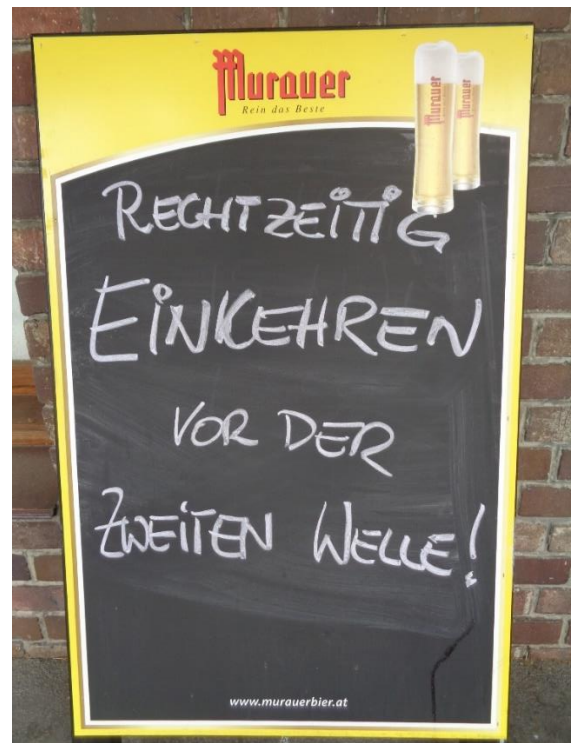 Murauer
Rein das Beste
Murauer
Murauer
RECHTZEITIG
EINKEHREN
VOR DER
ZWEITEN WELLE!
www.murauerbier.at